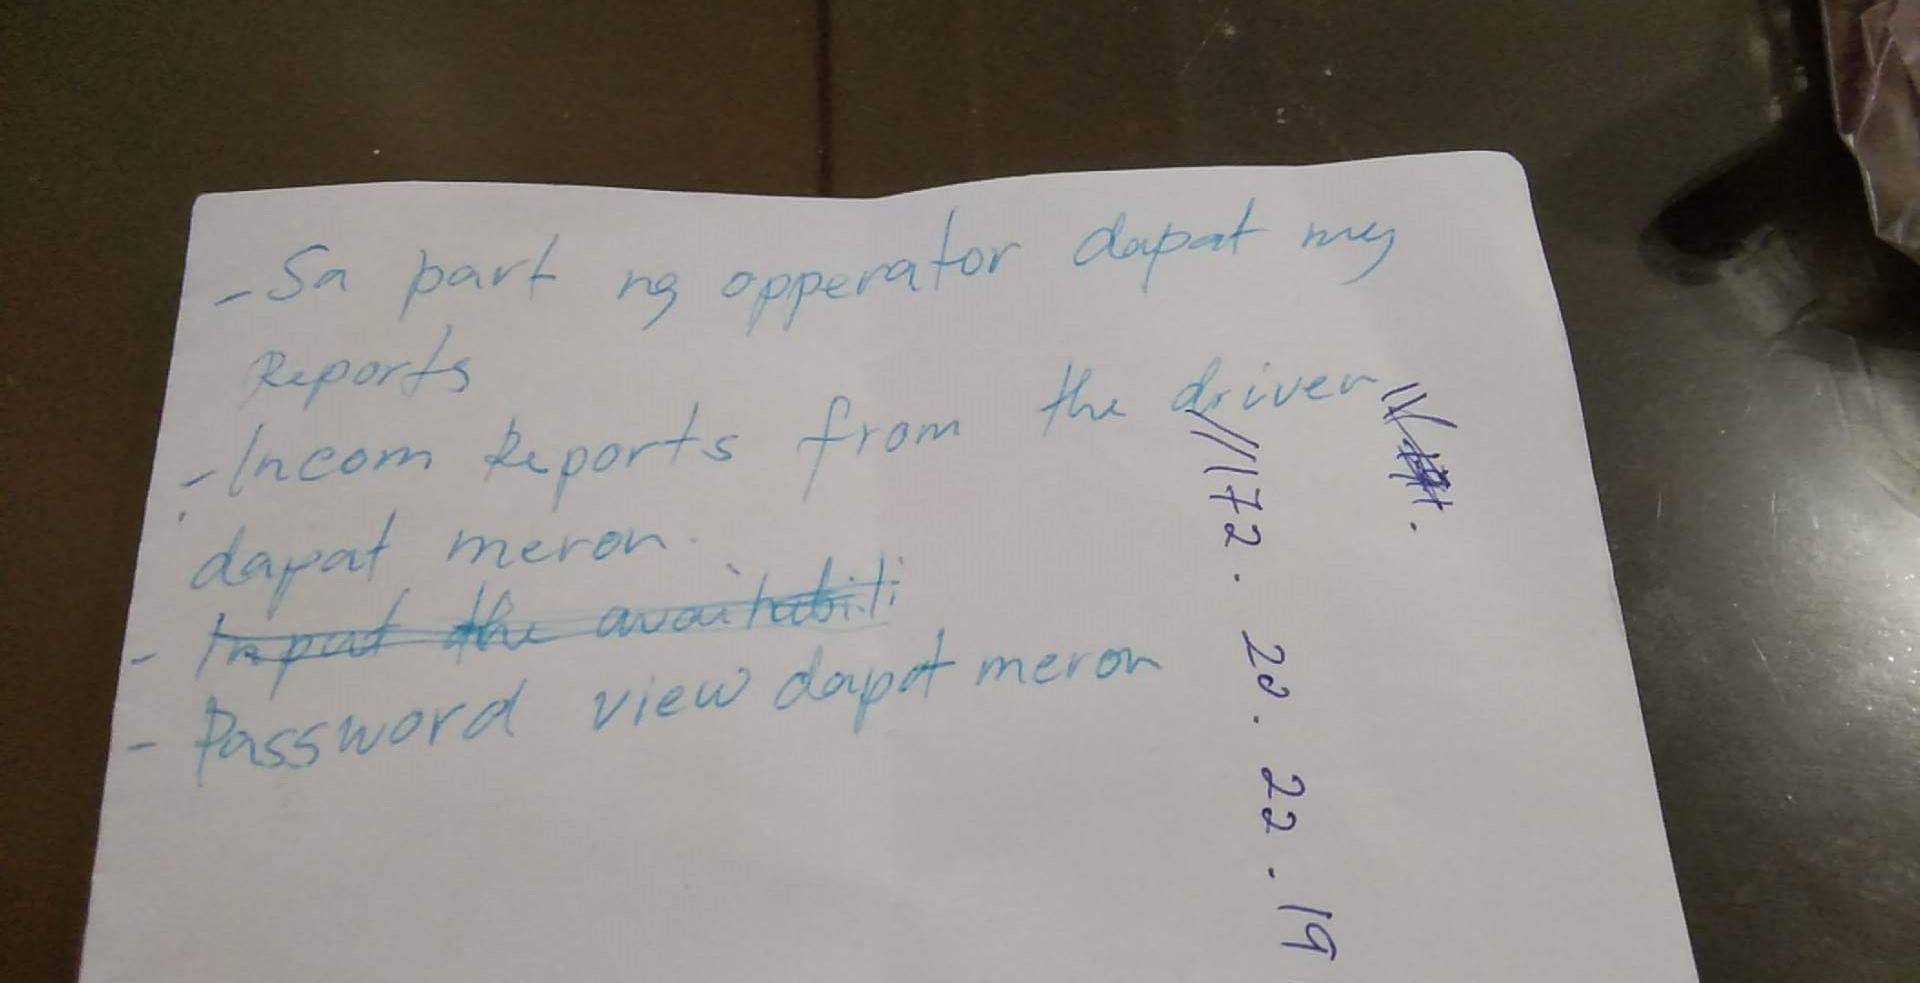 - Sa part ng opperator dapat my
Reports
- Incom Reports from the driver
dapat meron.
- Input the availabiliti
- Password view dapat meron
\\172. 20. 22. 19